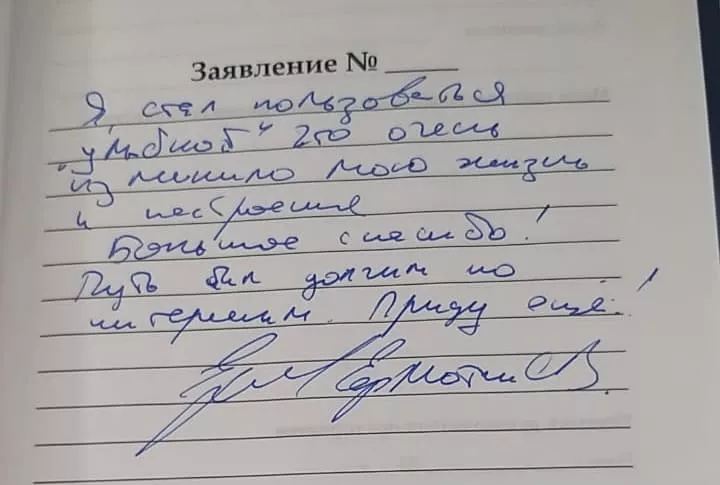 Заявление № _____
Я стал пользоваться
"улыбкой" это очень
изменило мою жизнь
и настроение
Большое спасибо!
Путь был долгим но
интересным. Приду ещё!